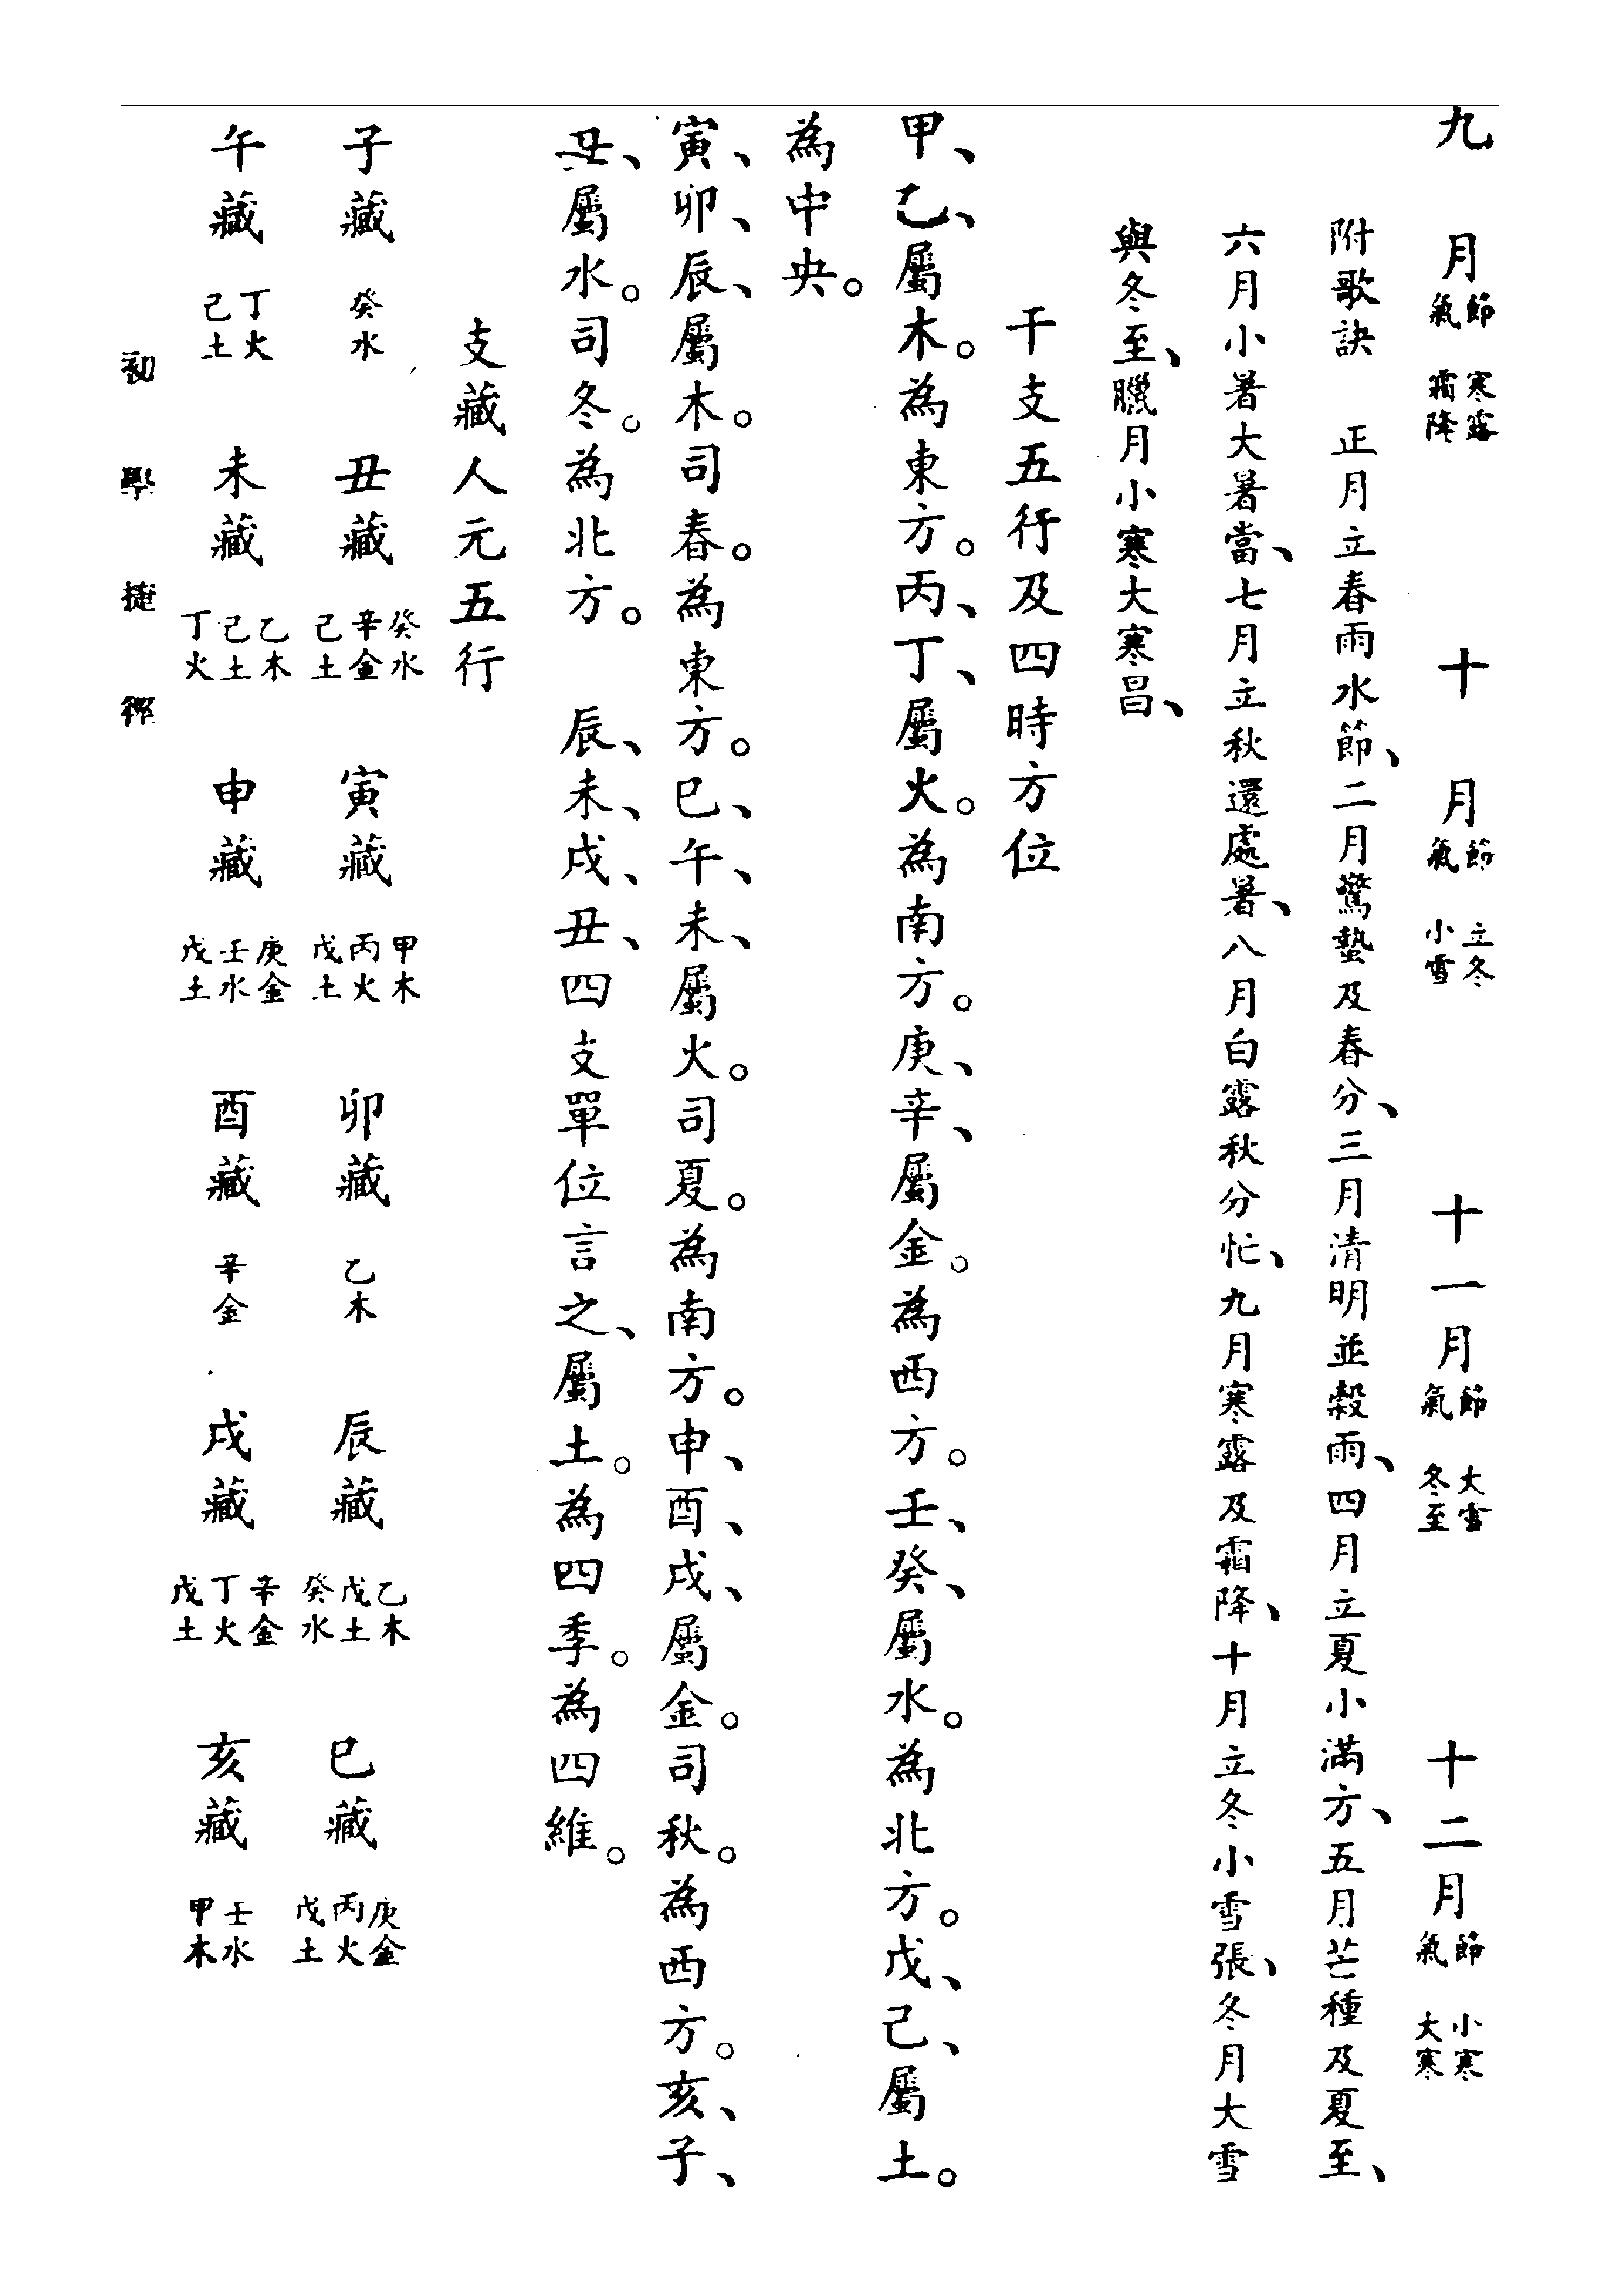 九月節氣 寒露 霜降 十月節氣 立冬 小雪 十一月節氣 大雪 冬至 十二月節氣 小寒 大寒
附歌訣 正月立春雨水節、二月驚蟄及春分、三月清明並穀雨、四月立夏小滿方、五月芒種及夏至、
六月小暑大暑當、七月立秋還處暑、八月白露秋分忙、九月寒露及霜降、十月立冬小雪張、冬月大雪
與冬至、臘月小寒大寒昌、
干支五行及四時方位
甲、乙、屬木。為東方。丙、丁、屬火。為南方。庚、辛、屬金。為西方。壬、癸、屬水。為北方。戊、己、屬土。
為中央。
寅、卯、辰、屬木。司春。為東方。巳、午、未、屬火。司夏。為南方。申、酉、戌、屬金。司秋。為西方。亥、子、
丑、屬水。司冬。為北方。 辰、未、戌、丑、四支單位言之、屬土。為四季。為四維。
支藏人元五行
子藏 癸水 丑藏 癸水 辛金 己土 寅藏 甲木 丙火 戊土 卯藏 乙木 辰藏 乙木 戊土 癸水 巳藏 庚金 丙火 戊土
午藏 丁火 己土 未藏 乙木 己土 丁火 申藏 庚金 壬水 戊土 酉藏 辛金 戌藏 辛金 丁火 戊土 亥藏 壬水 甲木
初學捷徑